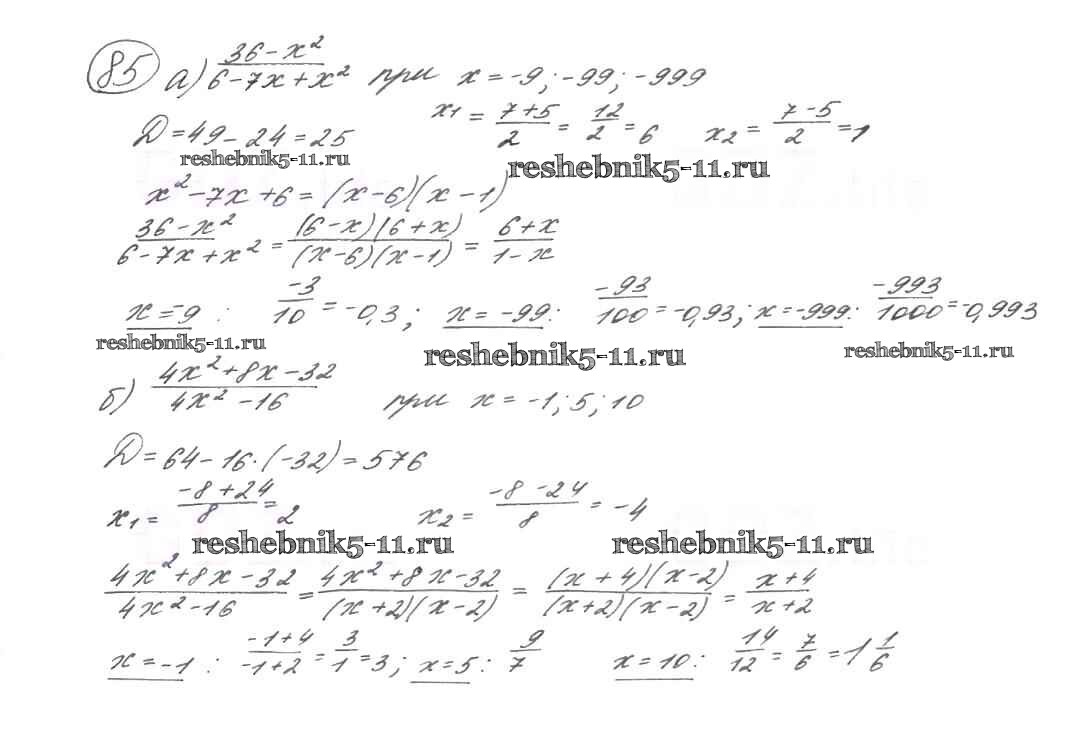 85 а) (36-x²)/(6-7x+x²) при x = -9; -99; -999
D = 49-24 = 25 x₁ = (7+5)/2 = 12/2 = 6 x₂ = (7-5)/2 = 1
reshebnik5-11.ru reshebnik5-11.ru
x²-7x+6 = (x-6)(x-1)
(36-x²)/(6-7x+x²) = ((6-x)(6+x))/((x-6)(x-1)) = (6+x)/(1-x)
x = -9: -3/10 = -0,3; x = -99: -93/100 = -0,93; x = -999: -993/1000 = -0,993
reshebnik5-11.ru reshebnik5-11.ru reshebnik5-11.ru
б) (4x²+8x-32)/(4x²-16) при x = -1; 5; 10
D = 64-16·(-32) = 576
x₁ = (-8+24)/8 = 2 x₂ = (-8-24)/8 = -4
reshebnik5-11.ru reshebnik5-11.ru
(4x²+8x-32)/(4x²-16) = (4x²+8x-32)/((x+2)(x-2)) = ((x+4)(x-2))/((x+2)(x-2)) = (x+4)/(x+2)
x = -1: (-1+4)/(-1+2) = 3/1 = 3; x = 5: 9/7 x = 10: 14/12 = 7/6 = 1 1/6